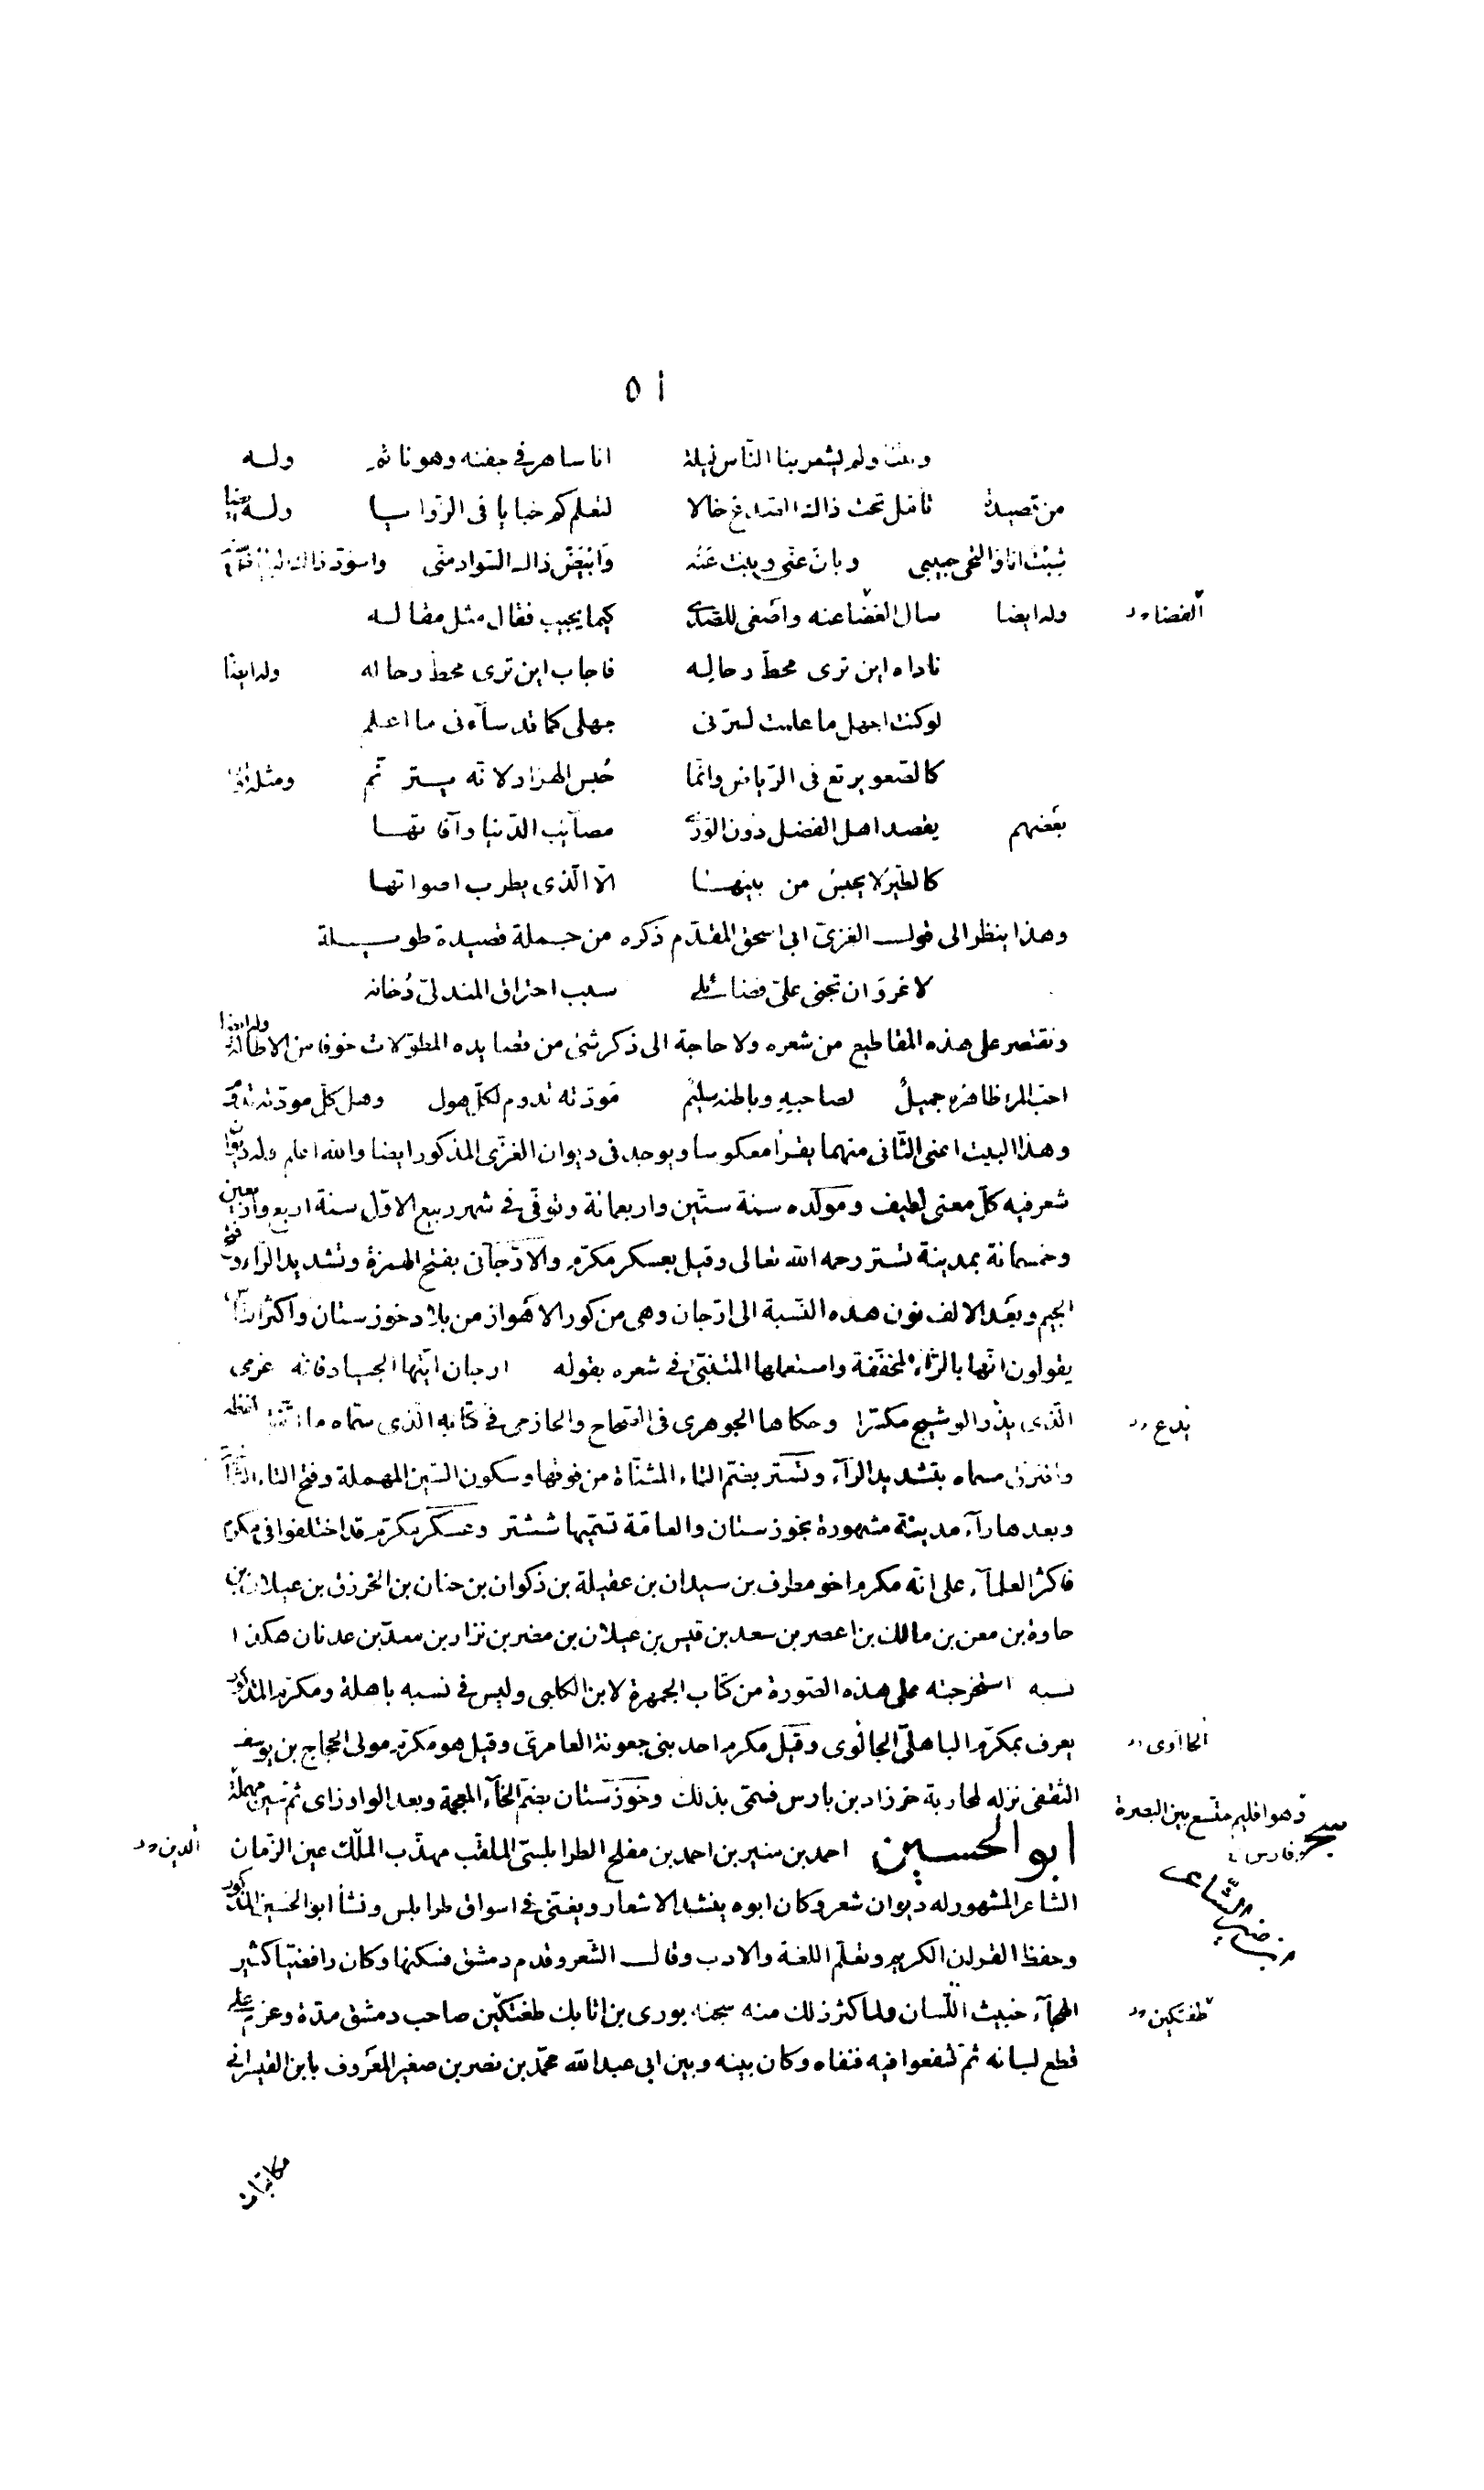 ٥١
وبتنا ولم يشعر بنا الناس ليلة انا ساهر فى جفنه وهو نائم وله
من قصيدة تأمل تحت ذاك الصدغ خالا لتعلم كم خبايا فى الزوايا وله ايضا
شبت انا والتحى حبيبى وبان عنى وبنت عنه وابيض ذاك السواد منى واسود ذاك البياض منه
الفضا وله ايضا سال الفضا عنه واصغى للصدى كيما يجيب فقال مثل مقاله
ناداه اين ترى محط رحاله فاجاب اين ترى محط رحاله وله ايضا
لو كنت اجهل ما علمت لسرنى جهلى كما قد ساءنى ما اعلم
كالصعو يرتع فى الرياض وانما حُبس الهزار لانه يترنم ومثله
بعضهم يقصد اهل الفضل دون الورى مصائب الدنيا وآفاتها
كالطير لا يحبس من بينهنا الّا الّذى يطرب اصواتها
وهذا ينظر الى قول الغزى ابى اسحق المقدّم ذكره من جملة قصيدة طويلة
لا غروَ ان تجنى علىّ فضائلى سبب احتراق المندلىّ دُخانه
ونقتصر على هذه المقاطيع من شعره ولا حاجة الى ذكر شئ من قصايده المطوّلات خوفا من الاطالة وله ايضا
احب المرء ظاهره جميلٌ لصاحبهِ وباطنه سليم مَودته تدوم لكلّ هول وهل كلّ مودّته تدوم
وهذا البيت اعنى الثّانى منهما يقرأ معكوسا ويوجد فى ديوان الغزّى المذكور ايضا والله اعلم وله ديوان
شعر فيه كلّ معنى لطيف ومولده سنة ستّين واربعمائة وتوفّى فى شهر ربيع الاوّل سنة اربع واربعين
وخمسمائة بمدينة تستر رحمه الله تعالى وقيل بعسكر مكرّم والارّجانى بفتح الهمزة وتشديد الرّاء وفتح
الجيم وبعد الالف نون هذه النّسبة الى ارّجان وهى من كور الاهواز من بلاد خوزستان واكثر النّاس
يقولون انّها بالرّاء المخفّفة واستعملها المتنبّى فى شعره بقوله ارجان ايّتها الجياد فانه عزمى
الّذى يذر الوشيج مكسّرا وحكاها الجوهرى فى الصّحاح والحازمى فى كتابه الّذى سمّاه ما اتّفق لفظه يدع
وافترق مسماه بتشديد الرّآء وتستر بضمّ التاء المثنّاة من فوقها وسكون السّين المهملة وفتح التاء
وبعدها رآء مدينة مشهورة بخوزستان والعامّة تسمّيها ششتر وعسكر مكرّم قد اختلفوا فى مكرم
فاكثر العلمآء على انّه مكرم اخو مطرف بن سيدان بن عقيلة بن ذكوان بن حنان بن الخرزق بن عيلان بن
حاوة بن معن بن مالك بن اعصر بن سعد بن قيس بن عيلان بن مضر بن نزار بن معدّ بن عدنان هكذا
نسبه استخرجته على هذه الصّورة من كتاب الجمهرة لابن الكلبى وليس فى نسبه باهلة ومكرّم المذكور
يعرف بمكرّم الباهلىّ الجائوى وقيل مكرم احد بنى جعونة العامرىّ وقيل هو مكرّم مولى الحجاج بن يوسف الحاآوى
الثقفى نزله لمحاربة خرزاد بن بارس فسمّى بذلك وخوزستان بضمّ الخآء المعجمة وبعد الواو زاى ثمّ سين مهملة
وهو اقليم متّسع بين البصرة
وفارس
ابو الحسين احمد بن منير بن احمد بن مفلح الطرابلسىّ الملقب مهذّب الملك عين الزّمان الدين
الشاعر
الشاعر المشهور له ديوان شعر وكان ابوه ينشد الاشعار ويغنّى فى اسواق طرابلس ونشأ ابو الحسين المذكور
وحفظ القرآن الكريم وتعلّم اللغة والادب وقال الشّعر وقدم دمشق فسكنها وكان رافضيّا كثير
الهجآء خبيث اللّسان ولما كثر ذلك منه سجنه بورى بن اتابك طغتكين صاحب دمشق مدّة وعزم على طغتكين
قطع لسانه ثمّ شفعوا فيه فنفاه وكان بينه وبين ابى عبد الله محمّد بن نصر بن صغير المعروف بابن القيسرانى
مكاتبات